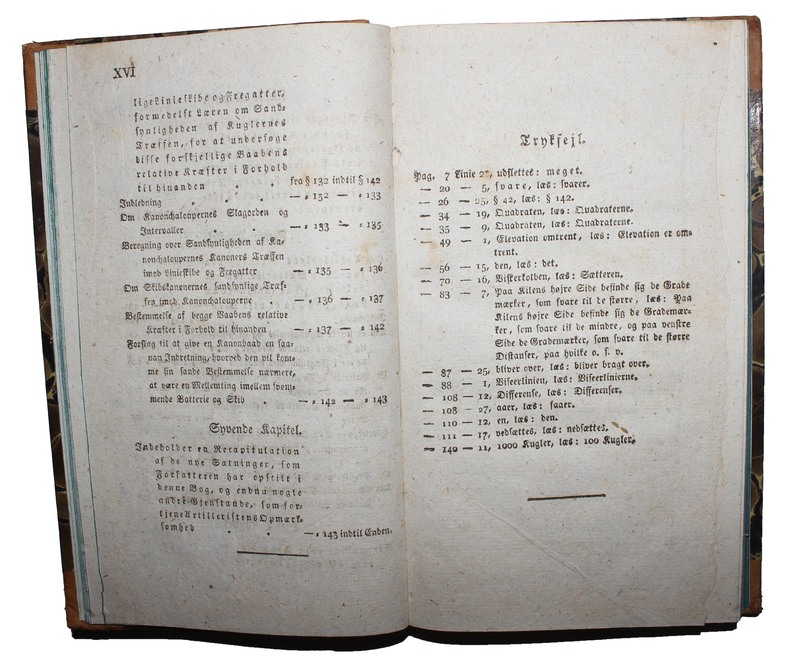 XVI
lige Linieskibe og Fregatter,
formedelst Læren om Sand-
synligheden af Kuglernes
Træffen, for at undersøge
disse forskjellige Vaabens
relative Kræfter i Forhold
til hinanden . . fra § 132 indtil § 142
Indledning . . . — = 132 — = 133
Om Kanonchaloupernes Slagorden og
Intervaller . . . — = 133 — = 135
Beregning over Sandsynligheden af Ka-
nonchaloupernes Kanoners Træffen
imod Linieskibe og Fregatter — = 135 — = 136
Om Skibskanonernes sandsynlige Træf-
fen imod Kanonchalouperne . — = 136 — = 137
Bestemmelse af begge Vaabens relative
Kræfter i Forhold til hinanden — = 137 — = 142
Forslag til at give en Kanonbaad en saa-
nan Indretning, hvorved den vil kom-
me sin sande Bestemmelse nærmere,
at være en Mellemting imellem svøm-
mende Batterie og Skib . — = 142 — = 143
Syvende Kapitel.
Indeholder en Recapitulation
af de nye Sætninger, som
Forfatteren har opstilt i
denne Bog, og endnu nogle
andre Gjenstande, som for-
tjene Artilleristens Opmærk-
somhed . . — = 143 indtil Enden.
Trykfejl.
Pag. 7 Linie 27, udslettes: meget.
— 20 — 5, svare, læs: svarer.
— 26 — 25, § 42, læs: § 142.
— 34 — 19, Quadraten, læs: Quadraterne.
— 35 — 9, Quadraten, læs: Quadraterne.
— 49 — 1, Elevation omtrent, læs: Elevation er om-
trent.
— 56 — 15, den, læs: det.
— 70 — 16, Visterkolben, læs: Sætteren.
— 83 — 7, Paa Kilens højre Side befinde sig de Grade
mærker, som svare til de større, læs: Paa
Kilens højre Side befinde sig de Grademær-
ker, som svare til de mindre, og paa venstre
Side de Grademærker, som svare til de større
Distanser, paa hvilke o. s. v.
— 87 — 25, bliver over, læs: bliver bragt over.
— 88 — 1, Viseerlinien, læs: Viseerlinierne.
— 108 — 12, Differense, læs: Differenser.
— 108 — 27, aaer, læs: faaer.
— 110 — 12, en, læs: den.
— 111 — 17, vedsættes, læs: nedsættes.
— 140 — 11, 1000 Kugler, læs: 100 Kugler.